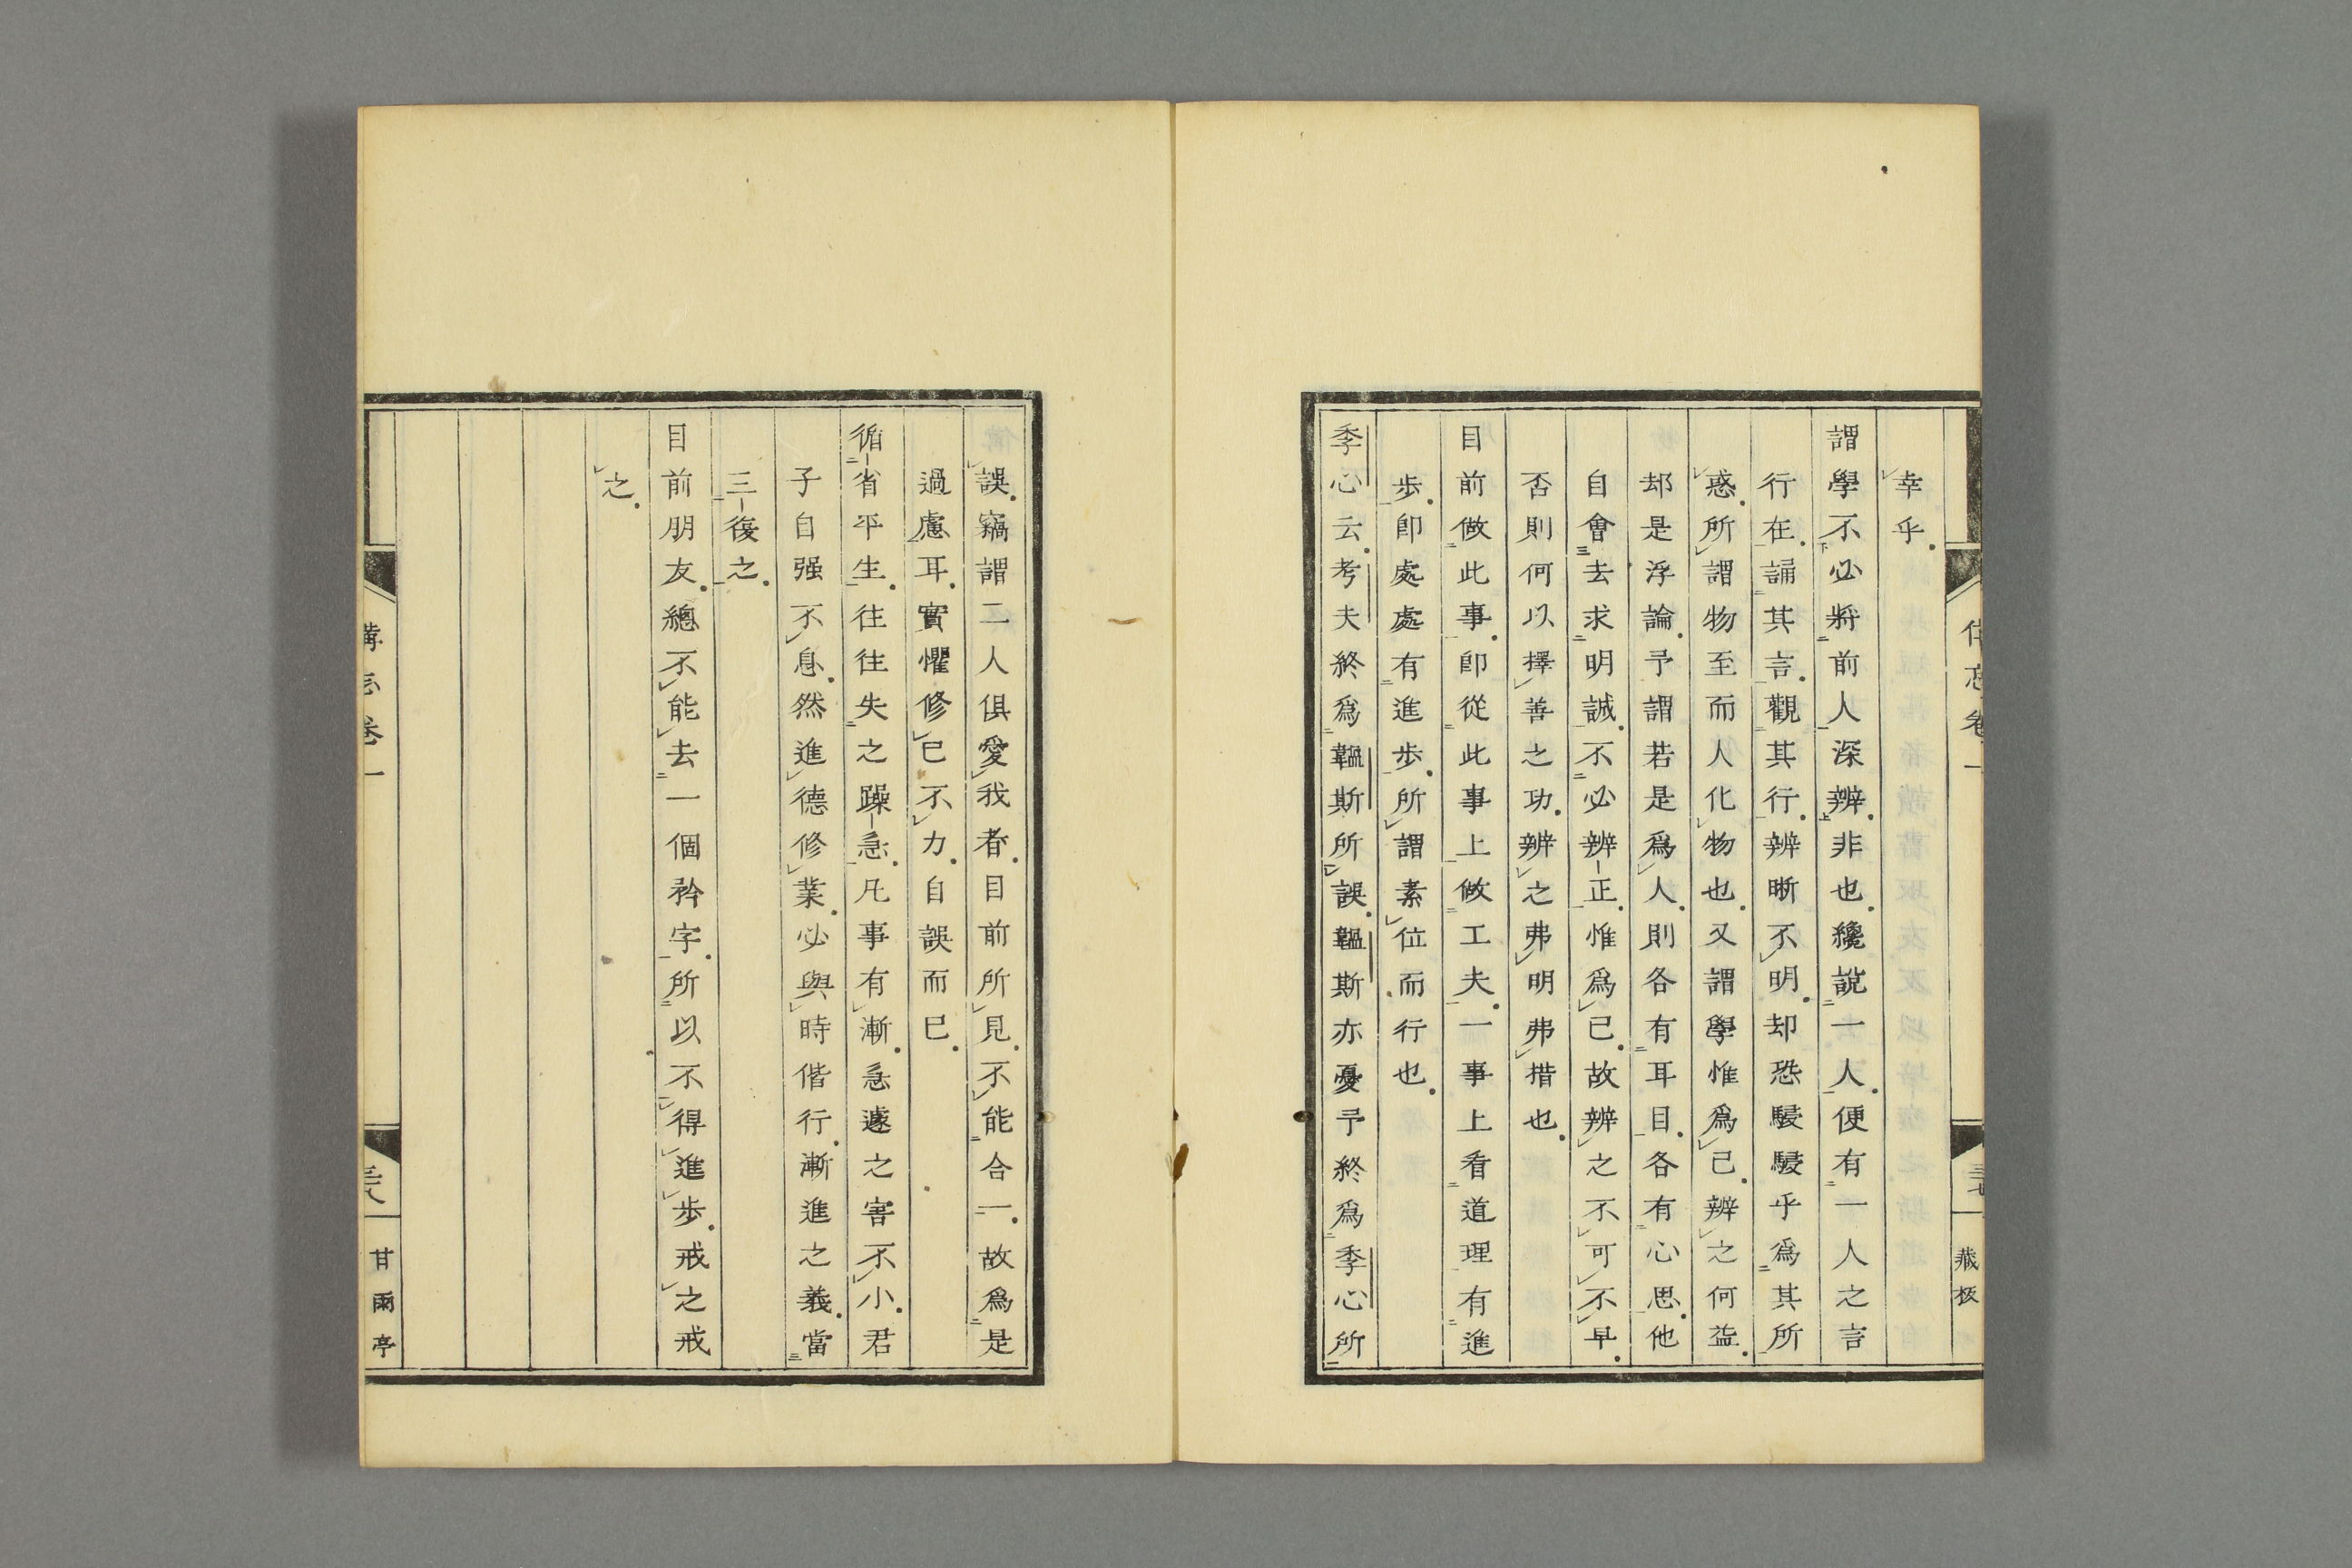 幸乎
謂學不必將前人深辨非也纔說一人便有一人之言
行在誦其言觀其行辨晰不明却恐駸駸乎爲其所
惑所謂物至而人化物也又謂學惟爲己辨之何益
却是浮論予謂若是爲人則各有耳目各有心思他
自會去求明誠不必辨正惟爲己故辨之不可不早
否則何以擇善之功辨之弗明弗措也
目前做此事卽從此事上做工夫一事上看道理有進
步卽處處有進步所謂素位而行也
季心云考夫終爲韞斯所誤韞斯亦憂予終爲季心所
誤竊謂二人俱愛我者目前所見不能合一故爲是
過慮耳實懼修己不力自誤而已
循省平生往往失之躁急凡事有漸急遽之害不小君
子自强不息然進德修業必與時偕行漸進之義當
三復之
目前朋友總不能去一個矜字所以不得進步戒之戒
之
備忘卷一
藏板
備忘卷一
甘雨亭